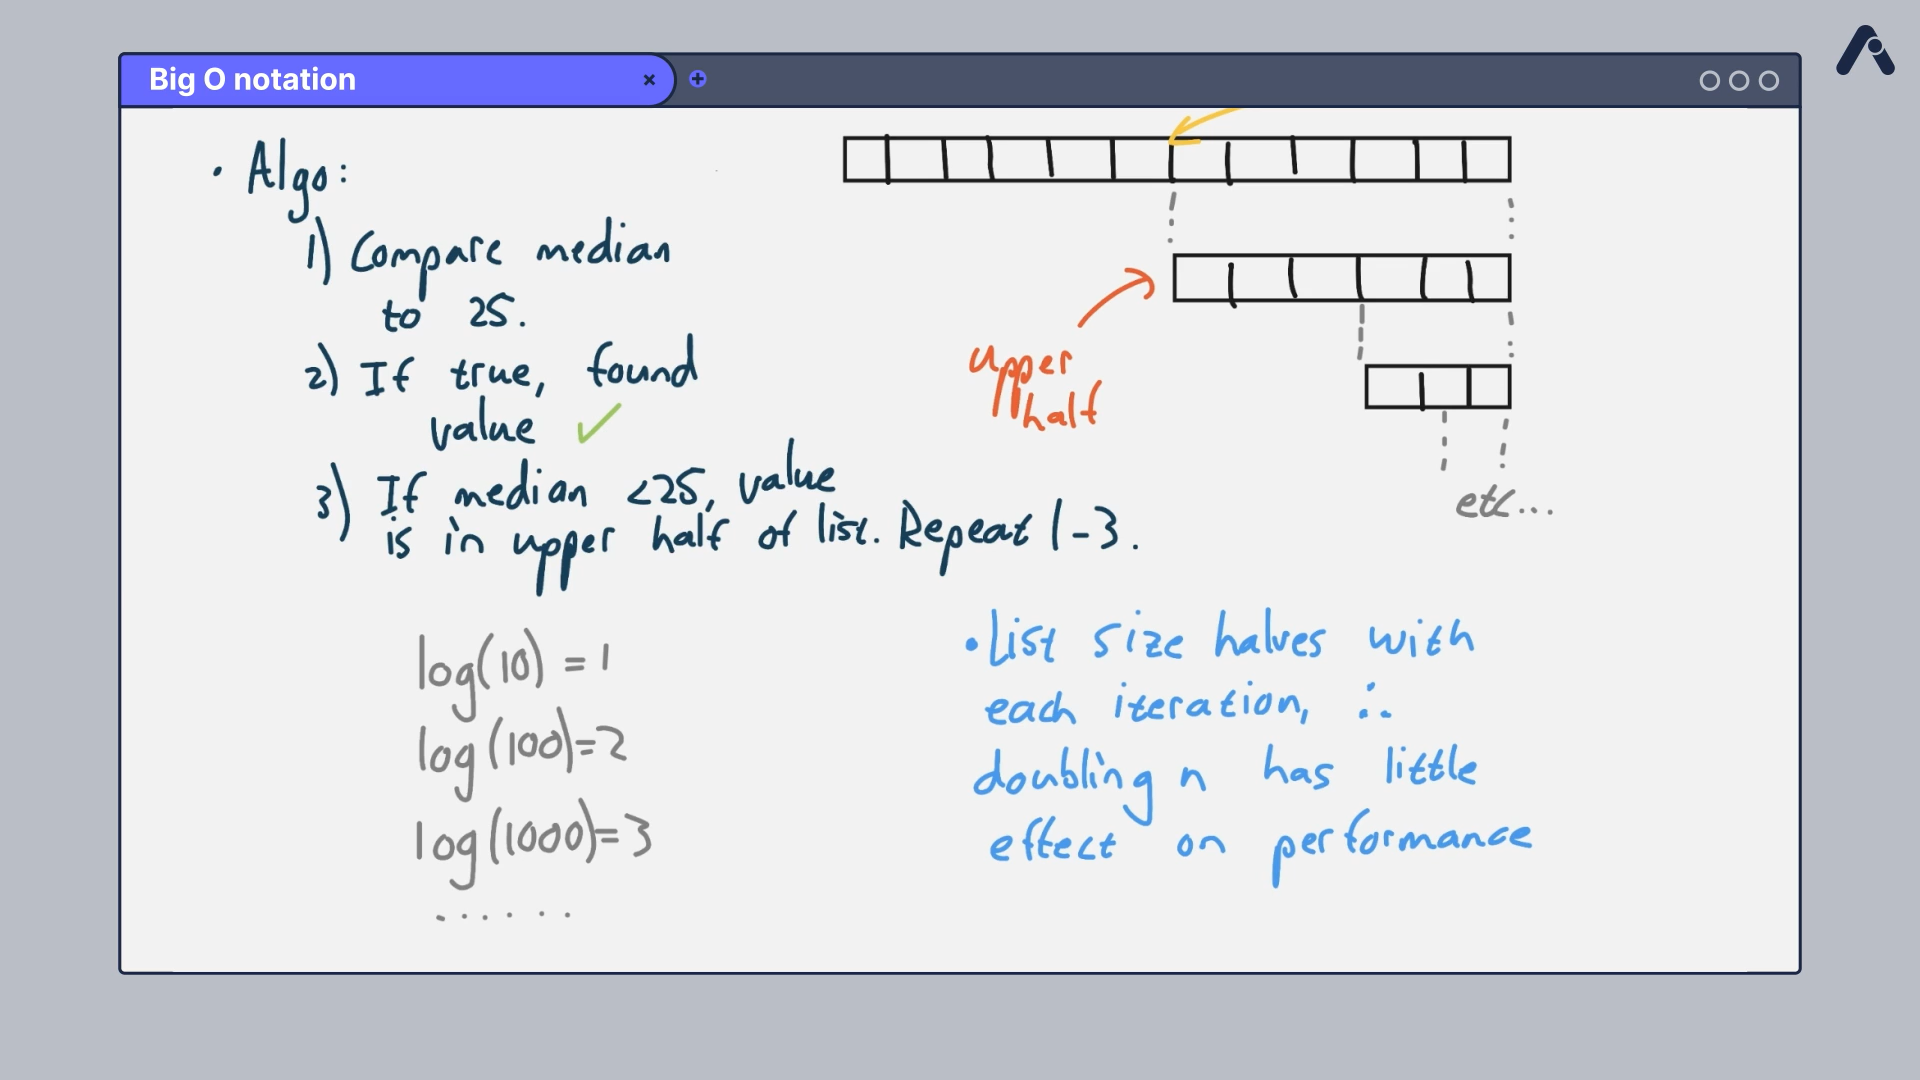 Big O notation
• Algo:
1) Compare median
to 25.
2) If true, found
value ✓
3) If median <25, value
is in upper half of list. Repeat 1-3.
upper
half
etc...
log(10) = 1
log(100)=2
log(1000)=3
......
• List size halves with
each iteration, ∴
doubling n has little
effect on performance